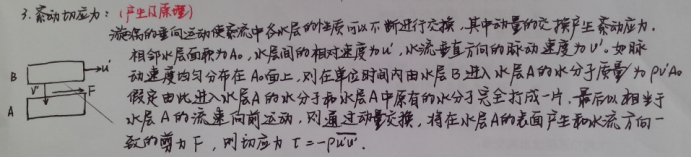 3. 紊动切应力：（产生及原理）
涡漩的垂向运动使紊流中各水层的性质可以不断进行交换，其中动量的交换产生紊动应力．
相邻水层面积为A₀，水层间的相对速度为u'，水流垂直方向的脉动速度为v'。如脉
动速度均匀分布在A₀面上，则在单位时间内由水层B进入水层A的水分子质量为ρv'A₀
假定由此进入水层A的水分子和水层A中原有的水分子完全打成一片．最后以相当于
水层A的流速向前运动，则通过动量交换，将在水层A的表面产生和水流方向一
致的剪力F，则切应力 τ=-ρu'v'．
B
u'
v'
F
A